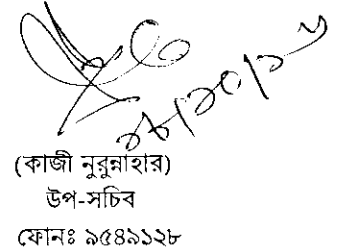 (কাজী নুরুন্নাহার)
উপ-সচিব
ফোনঃ ৯৫৪৯১২৮